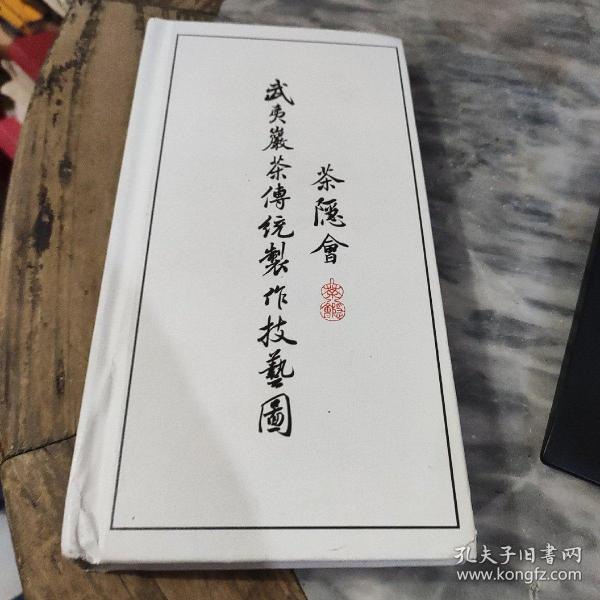 茶隱會
武夷巖茶傳统製作技藝圖
孔夫子旧书网
www.kongfz.com